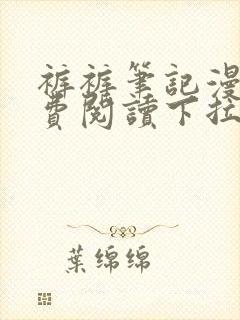 裤裤筆記漫
費閱讀下拉
葉绵绵